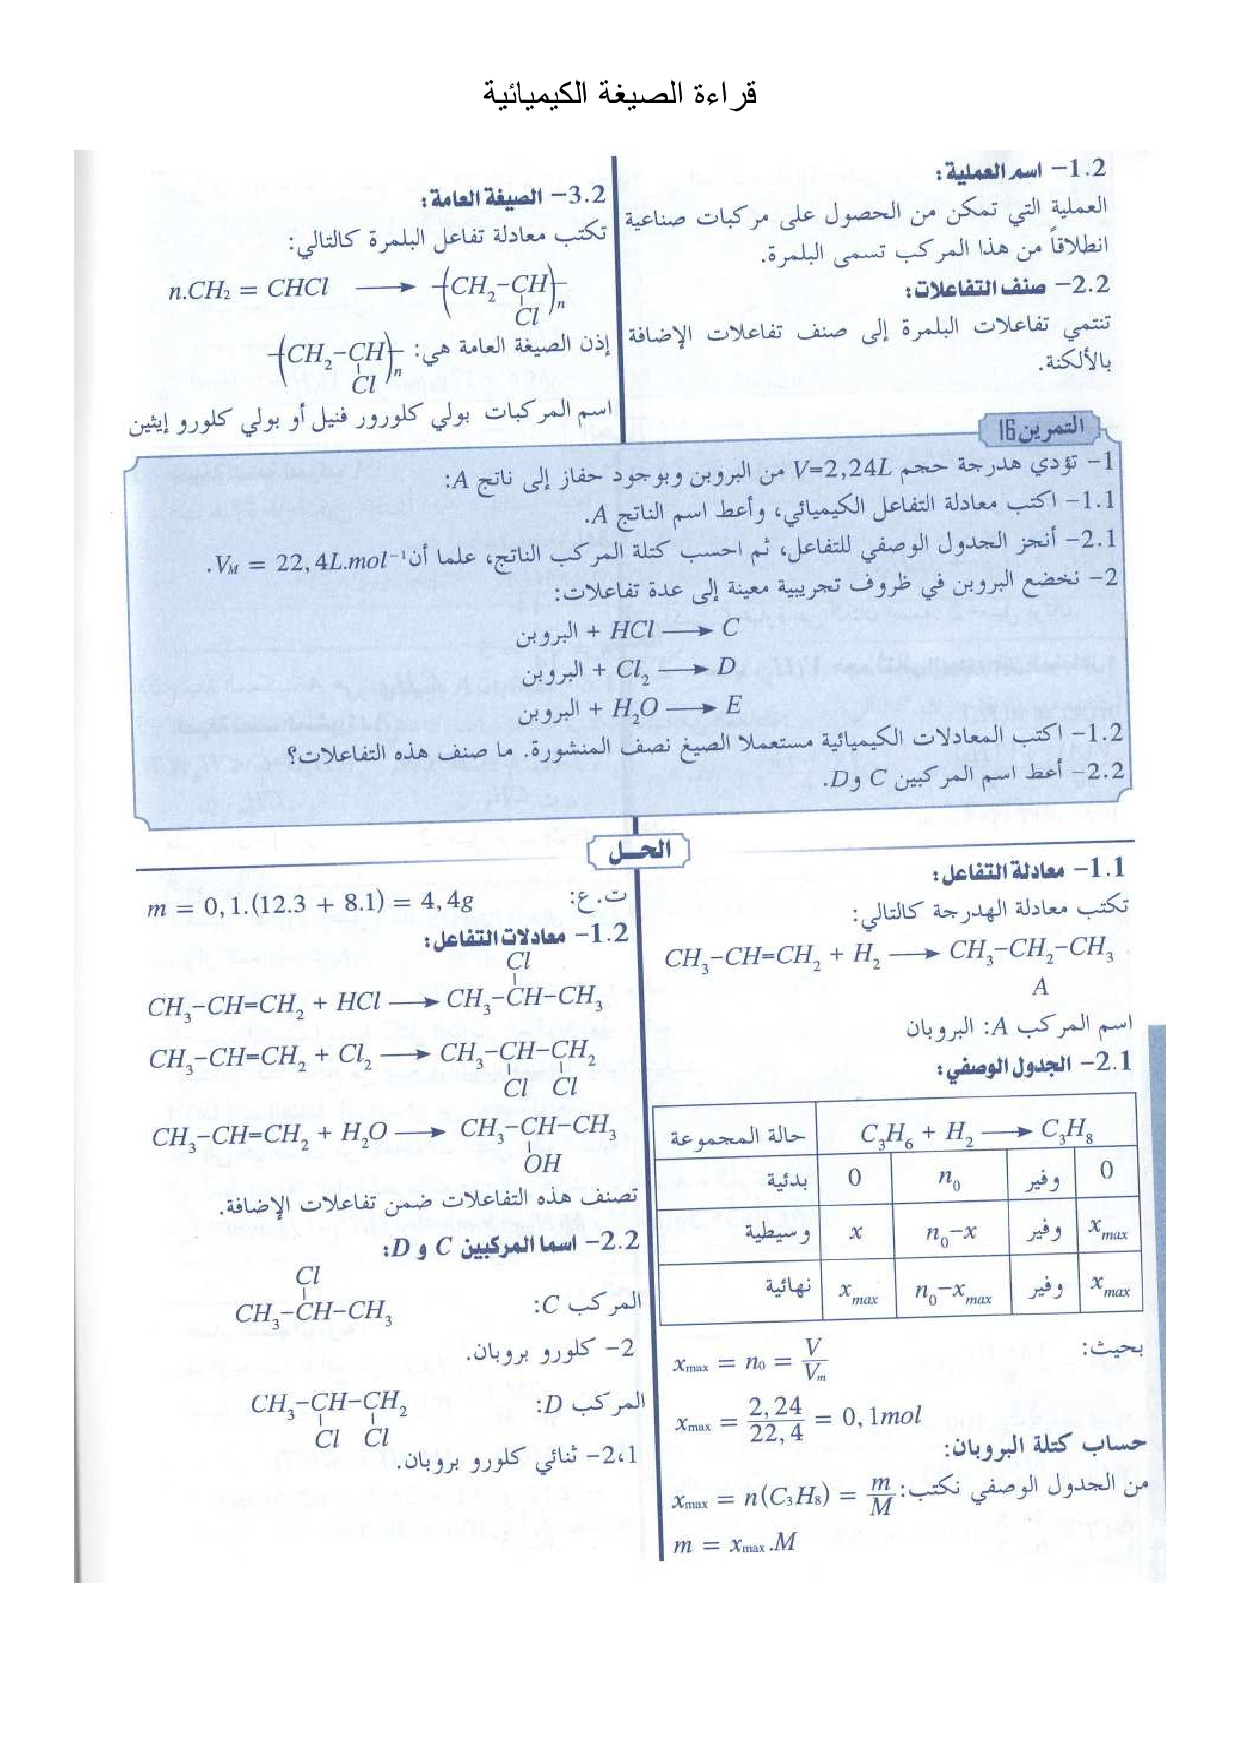 قراءة الصيغة الكيميائية
1.2– اسم العملية:
العملية التي تمكن من الحصول على مركبات صناعية
انطلاقاً من هذا المركب تسمى البلمرة.
2.2– صنف التفاعلات:
تنتمي تفاعلات البلمرة إلى صنف تفاعلات الإضافة
بالألكنة.
3.2– الصيغة العامة:
تكتب معادلة تفاعل البلمرة كالتالي:
n.CH₂ = CHCl ⟶ (CH₂–CH)n
Cl
إذن الصيغة العامة هي: (CH₂–CH)n
Cl
اسم المركبات بولي كلورور فنيل أو بولي كلورو إيثين
التمرين 16
1– تؤدي هدرجة حجم V=2,24L من البروبن وبوجود حفاز إلى ناتج A:
1.1– اكتب معادلة التفاعل الكيميائي، وأعط اسم الناتج A.
2.1– أنجز الجدول الوصفي للتفاعل، ثم احسب كتلة المركب الناتج، علما أن V_M = 22,4L.mol⁻¹.
2– نخضع البروبن في ظروف تجريبية معينة إلى عدة تفاعلات:
البروبن + HCl ⟶ C
البروبن + Cl₂ ⟶ D
البروبن + H₂O ⟶ E
1.2– اكتب المعادلات الكيميائية مستعملا الصيغ نصف المنشورة. ما صنف هذه التفاعلات؟
2.2– أعط اسم المركبين C وD.
الحـل
1.1– معادلة التفاعل:
تكتب معادلة الهدرجة كالتالي:
CH₃–CH=CH₂ + H₂ ⟶ CH₃–CH₂–CH₃
A
اسم المركب A: البروبان
2.1– الجدول الوصفي:
حالة المجموعة C₃H₆ + H₂ ⟶ C₃H₈
بدئية 0 n₀ وفير 0
وسيطية x n₀–x وفير x_max
نهائية x_max n₀–x_max وفير x_max
بحيث: x_max = n₀ = V/V_m
x_max = 2,24/22,4 = 0,1mol
حساب كتلة البروبان:
من الجدول الوصفي نكتب: x_max = n(C₃H₈) = m/M
m = x_max.M
ت.ع: m = 0,1.(12.3 + 8.1) = 4,4g
1.2– معادلات التفاعل:
Cl
CH₃–CH=CH₂ + HCl ⟶ CH₃–CH–CH₃
CH₃–CH=CH₂ + Cl₂ ⟶ CH₃–CH–CH₂
Cl Cl
CH₃–CH=CH₂ + H₂O ⟶ CH₃–CH–CH₃
OH
تصنف هذه التفاعلات ضمن تفاعلات الإضافة.
2.2– اسما المركبين C و D:
Cl
المركب C: CH₃–CH–CH₃
2– كلورو بروبان.
المركب D: CH₃–CH–CH₂
Cl Cl
2،1– ثنائي كلورو بروبان.